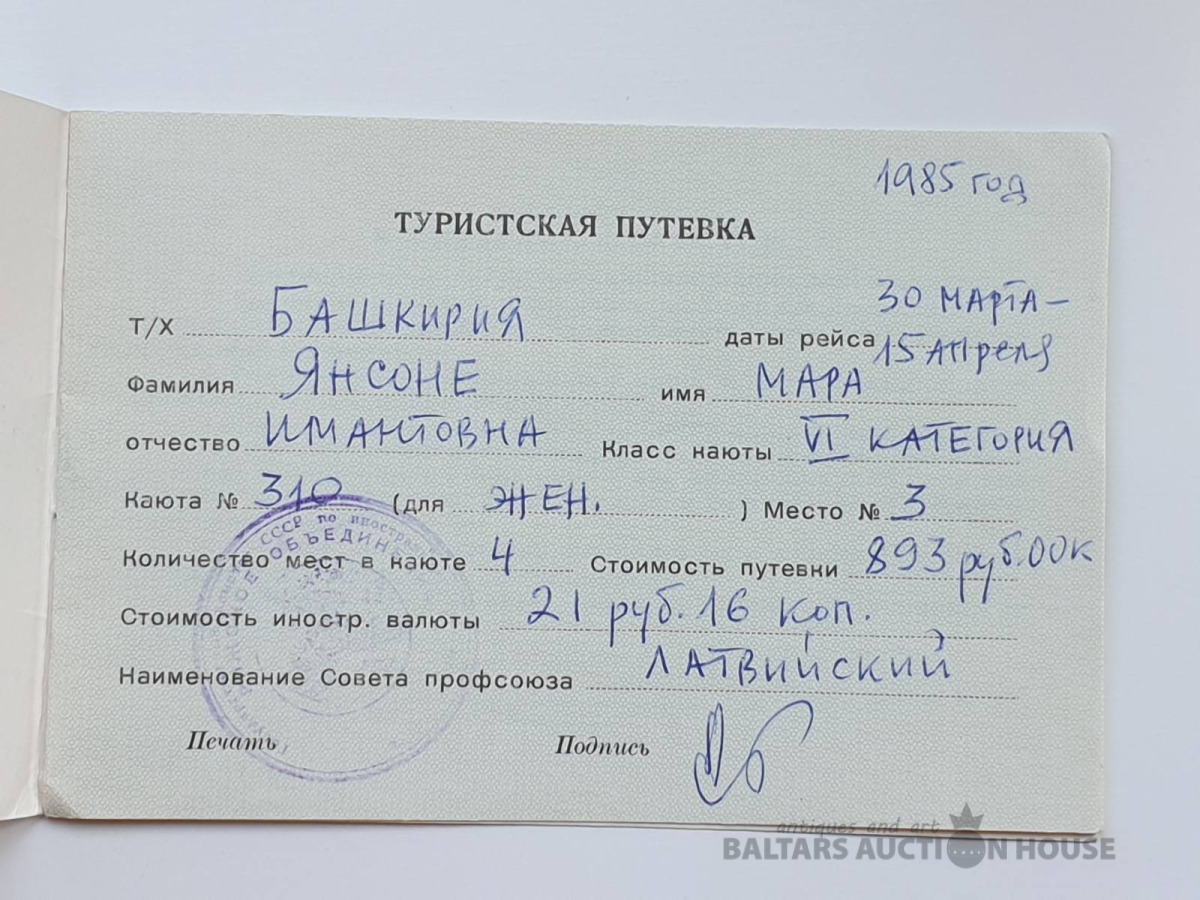 1985 год
ТУРИСТСКАЯ ПУТЕВКА
Т/Х БАШКИРИЯ даты рейса 30 МАРТА – 15 АПРЕЛЯ
Фамилия ЯНСОНЕ имя МАРА
отчество ИМАНТОВНА Класс каюты VI КАТЕГОРИЯ
Каюта № 310 (для ЖЕН. ) Место № 3
Количество мест в каюте 4 Стоимость путевки 893 руб. 00 к
Стоимость иностр. валюты 21 руб. 16 коп.
Наименование Совета профсоюза ЛАТВИЙСКИЙ
СССР по
Печать Подпись
antiques and art
BALTARS AUCTION HOUSE